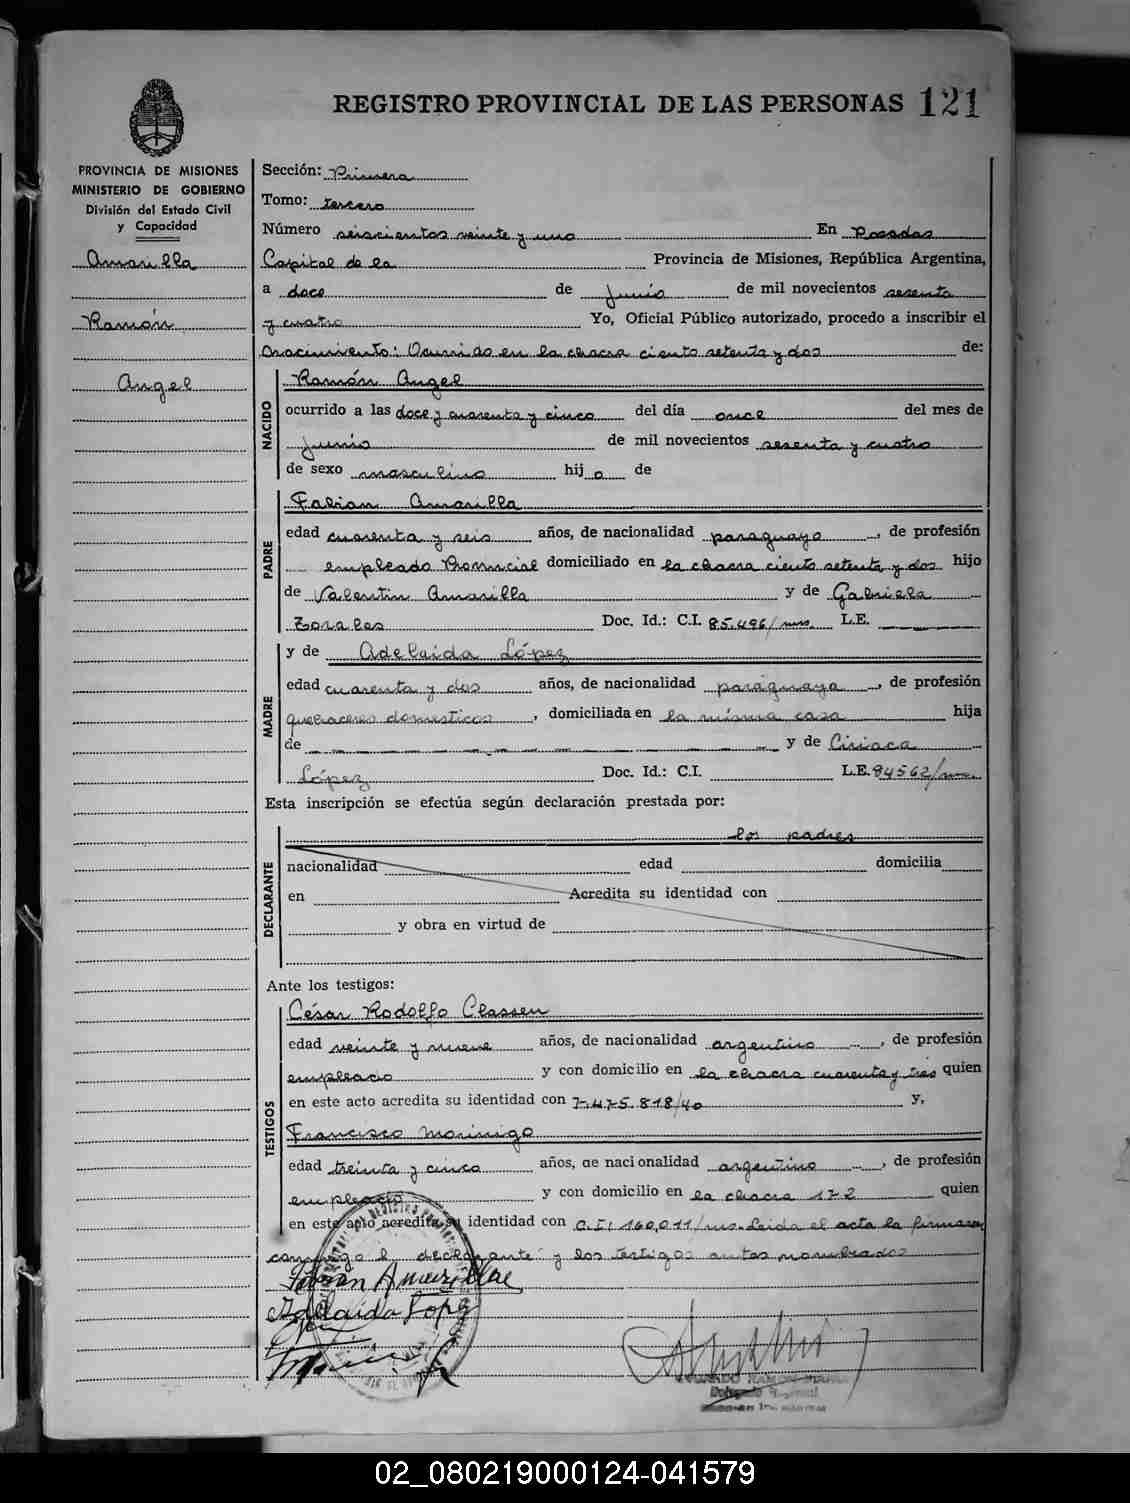 REGISTRO PROVINCIAL DE LAS PERSONAS 121
PROVINCIA DE MISIONES
MINISTERIO DE GOBIERNO
División del Estado Civil
y Capacidad
Amarilla
Ramón
Angel
Sección: Primera
Tomo: tercero
Número seiscientos veinte y uno En Posadas
Capital de la Provincia de Misiones, República Argentina,
a doce de junio de mil novecientos sesenta
y cuatro Yo, Oficial Público autorizado, procedo a inscribir el
nacimiento: Ocurrido en la chacra ciento setenta y dos de:
NACIDO
Ramón Angel
ocurrido a las doce y cuarenta y cinco del día once del mes de
junio de mil novecientos sesenta y cuatro
de sexo masculino hijo de
PADRE
Fabian Amarilla
edad cuarenta y seis años, de nacionalidad paraguayo, de profesión
empleado Provincial domiciliado en la chacra ciento setenta y dos hijo
de Valentin Amarilla y de Gabriela
Zorales Doc. Id.: C.I. 85.496/mis. L.E.
MADRE
y de Adelaida López
edad cuarenta y dos años, de nacionalidad paraguaya, de profesión
quehaceres domesticos, domiciliada en la misma casa hija
de y de Ciriaca
López Doc. Id.: C.I. L.E. 84562/mis.
Esta inscripción se efectúa según declaración prestada por:
DECLARANTE
los padres
nacionalidad edad domicilia
en Acredita su identidad con
y obra en virtud de
Ante los testigos:
TESTIGOS
César Rodolfo Classen
edad veinte y nueve años, de nacionalidad argentino, de profesión
empleado y con domicilio en la chacra cuarenta y tres quien
en este acto acredita su identidad con 7.475.818/40 y,
Francisco Morinigo
edad treinta y cinco años, de nacionalidad argentino, de profesión
empleado y con domicilio en la chacra 172 quien
en este acto acredita su identidad con C.I: 160,011/mis. Leida el acta la firman
conmigo el declarante y los testigos antes nombrados
Fabian Amarillae
Adelaida Lopez
Delegado
02_080219000124-041579